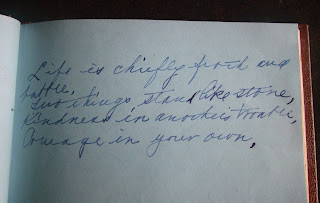 Life is chiefly froth and
bubble,
Two things, stand like stone,
Kindness in another's trouble,
Courage in your own,